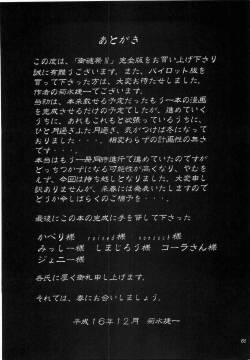 あとがき
この度は、「御迷祭Ⅱ」完全版をお買い上げ下さり
誠に有難うございます。また、パイロット版を
買って下さった方は、大変お待たせしました。
作者の菊水捷一でございます。
当初は、本来載せる予定だったもう一本の漫画
を完成させるだけの予定でしたが、進めていく
うちに、あれもこれもと欲張っているうちに、
ひと月過ぎふた月過ぎ、気がつけば冬になって
おりました・・・。相変わらずの計画性の無さ
です・・・。
本当はもう一冊同時進行で進めていたのですが
どっちつかずになる可能性が高くなり、やむを
えず、今回は持ち越しとなりました。大変申し
訳ありませんが、来春には発表いたしますので
どうか今しばらくのご猶予を・・・。
最後にこの本の完成に手を貸して下さった
かべり様 様 様
みっしー様 しまじろう様 コーラさん様
ジェニー様
各氏に厚く御礼申し上げます。
それでは、春にお会いしましょう。
平成16年12月 菊水捷一